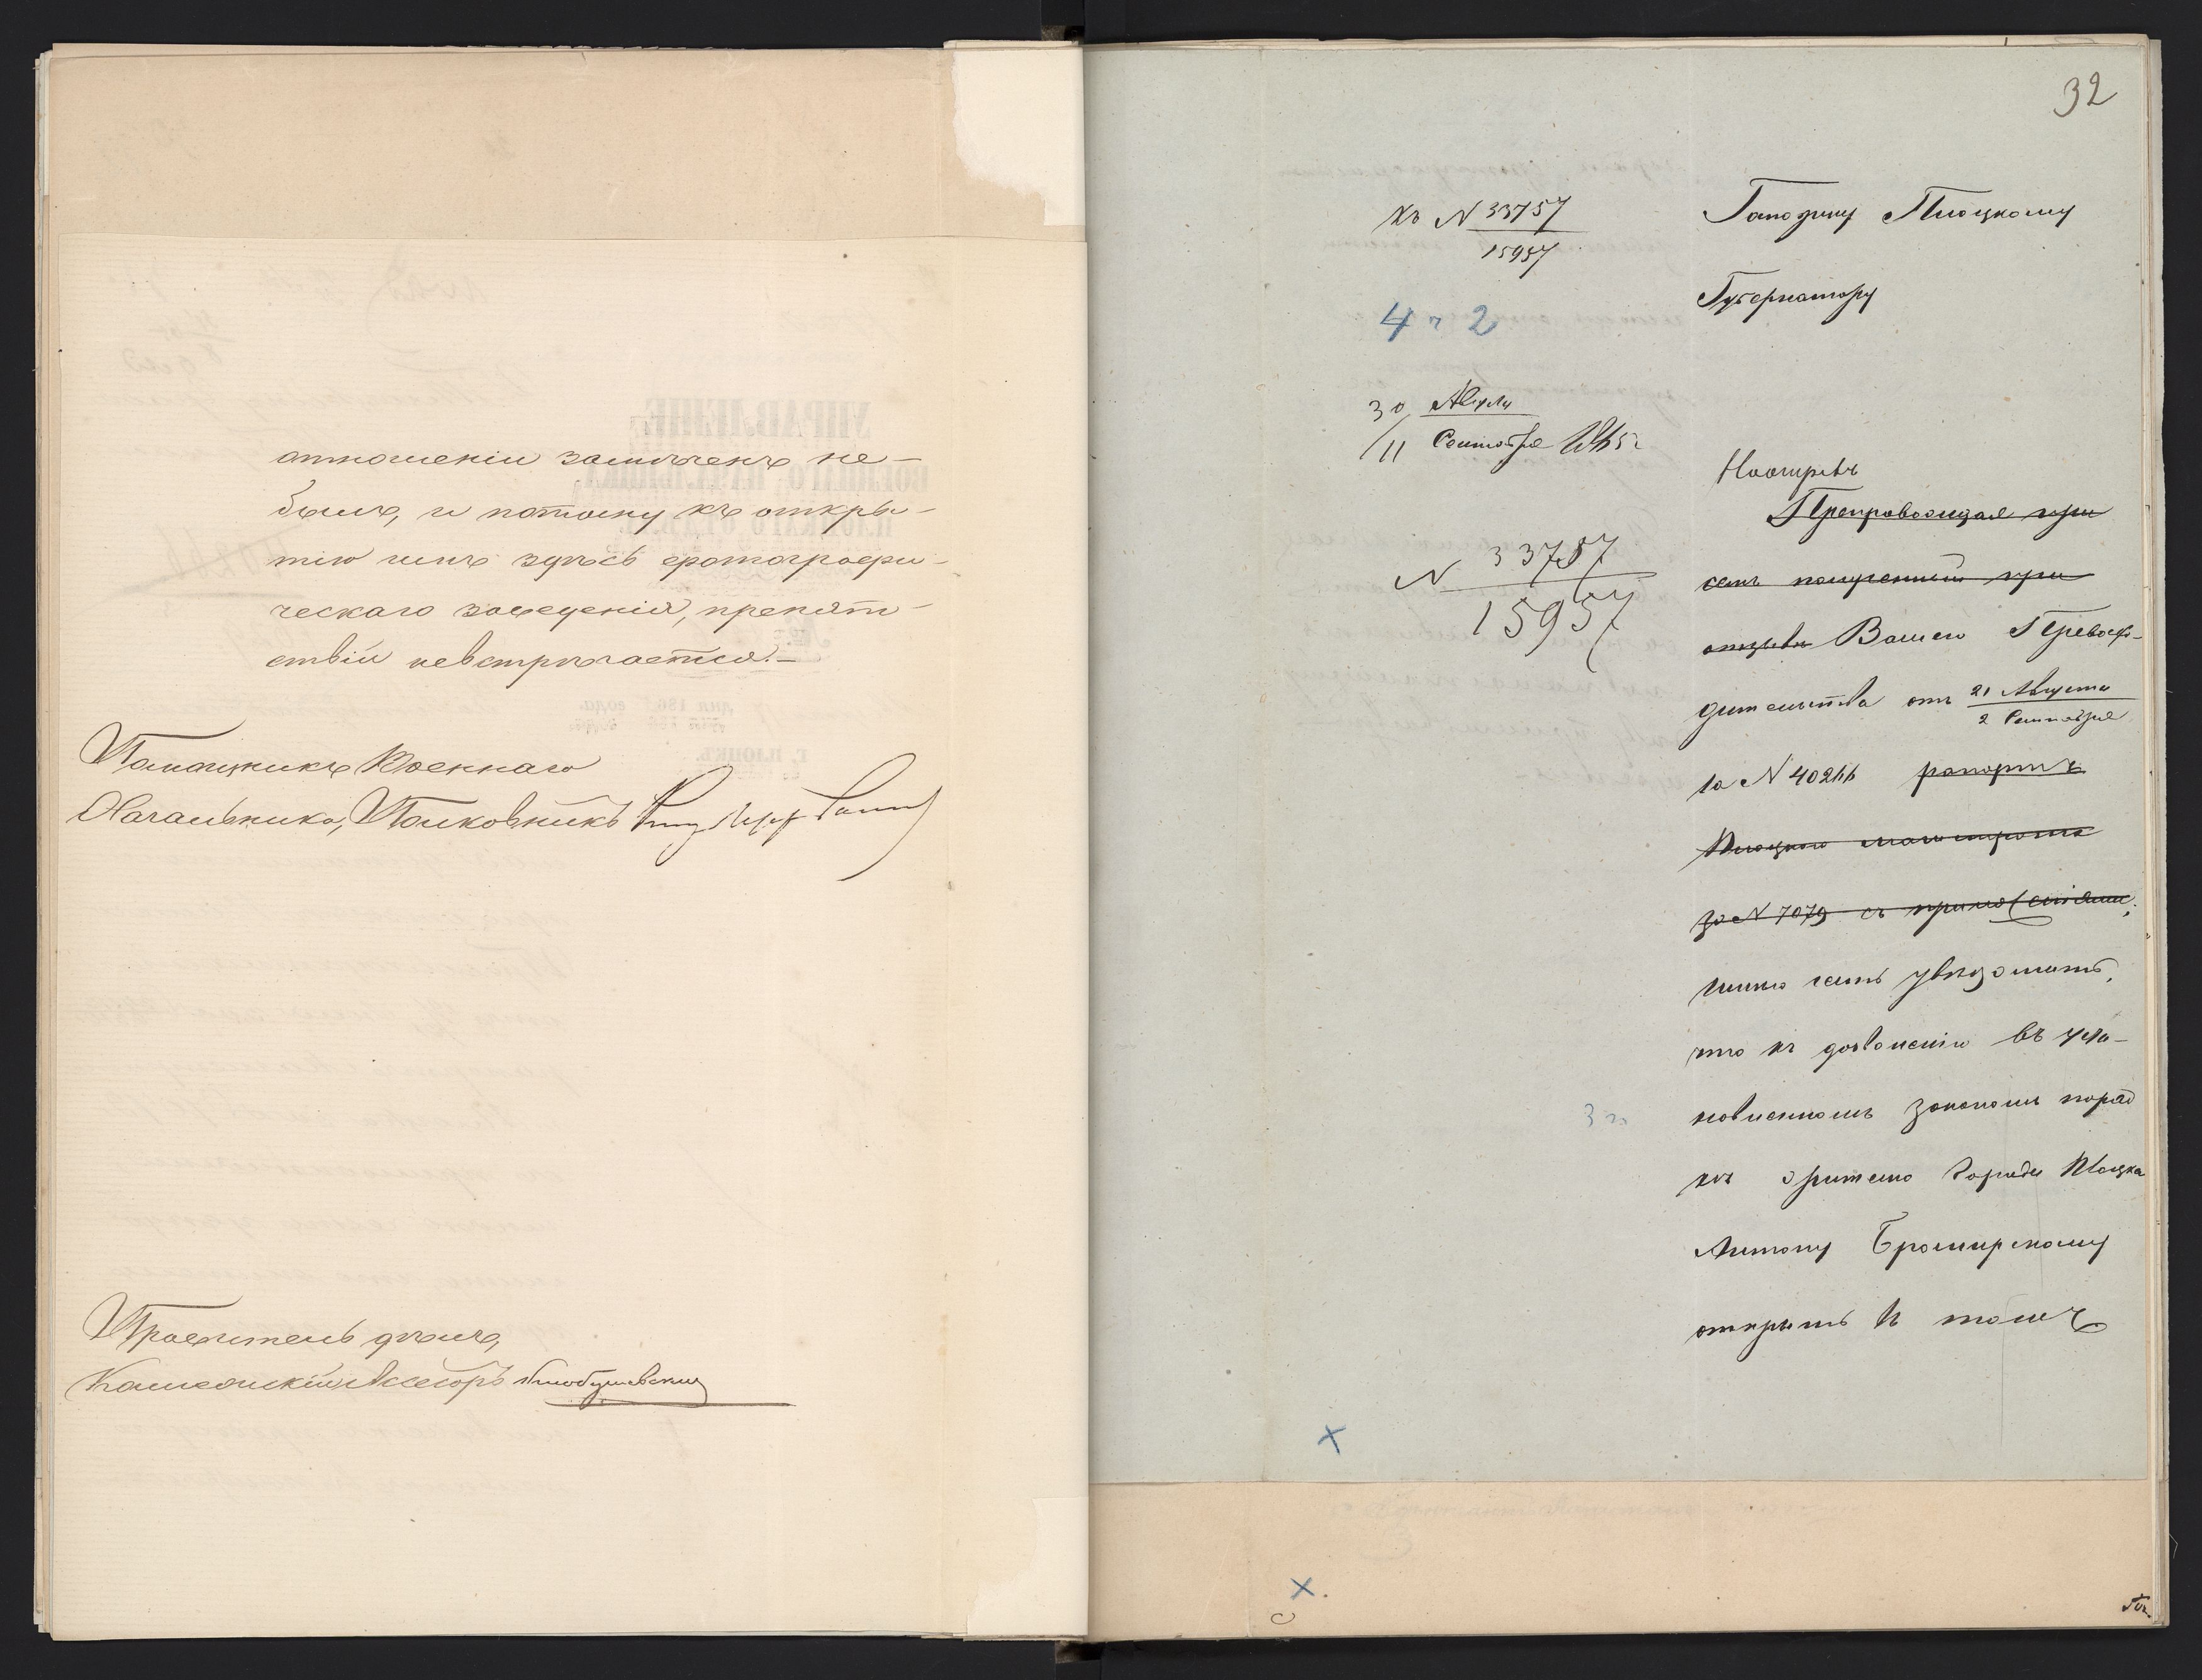 отношеніи замѣченъ не-
былъ, и потому къ откры-
тію имъ здѣсь фотографи-
ческаго заведенія, препят-
ствій невстрѣчается.-
Помощникъ Военнаго
Начальника, Полковникъ
Правитель дѣлъ,
Коллежскій Ассесоръ
32
Къ N 33757
15957
4 2
30 Авгу
11 Сентября
N 33757
15957
Господину Плоцкому
Губернатору
Препровождая при
семъ
отзывѣ Вашего Превосхо-
дительства отъ 21 Августа
2 Сентября
за N 40266 рапортъ
Плоцкаго магистрата
за N 7079 съ приложеніями,
имѣю честь увѣдомить,
что къ дозволенію въ уста-
новленномъ закономъ поряд
кѣ жителю города Плоцка
Антону Бромирскому
открыть въ томъ